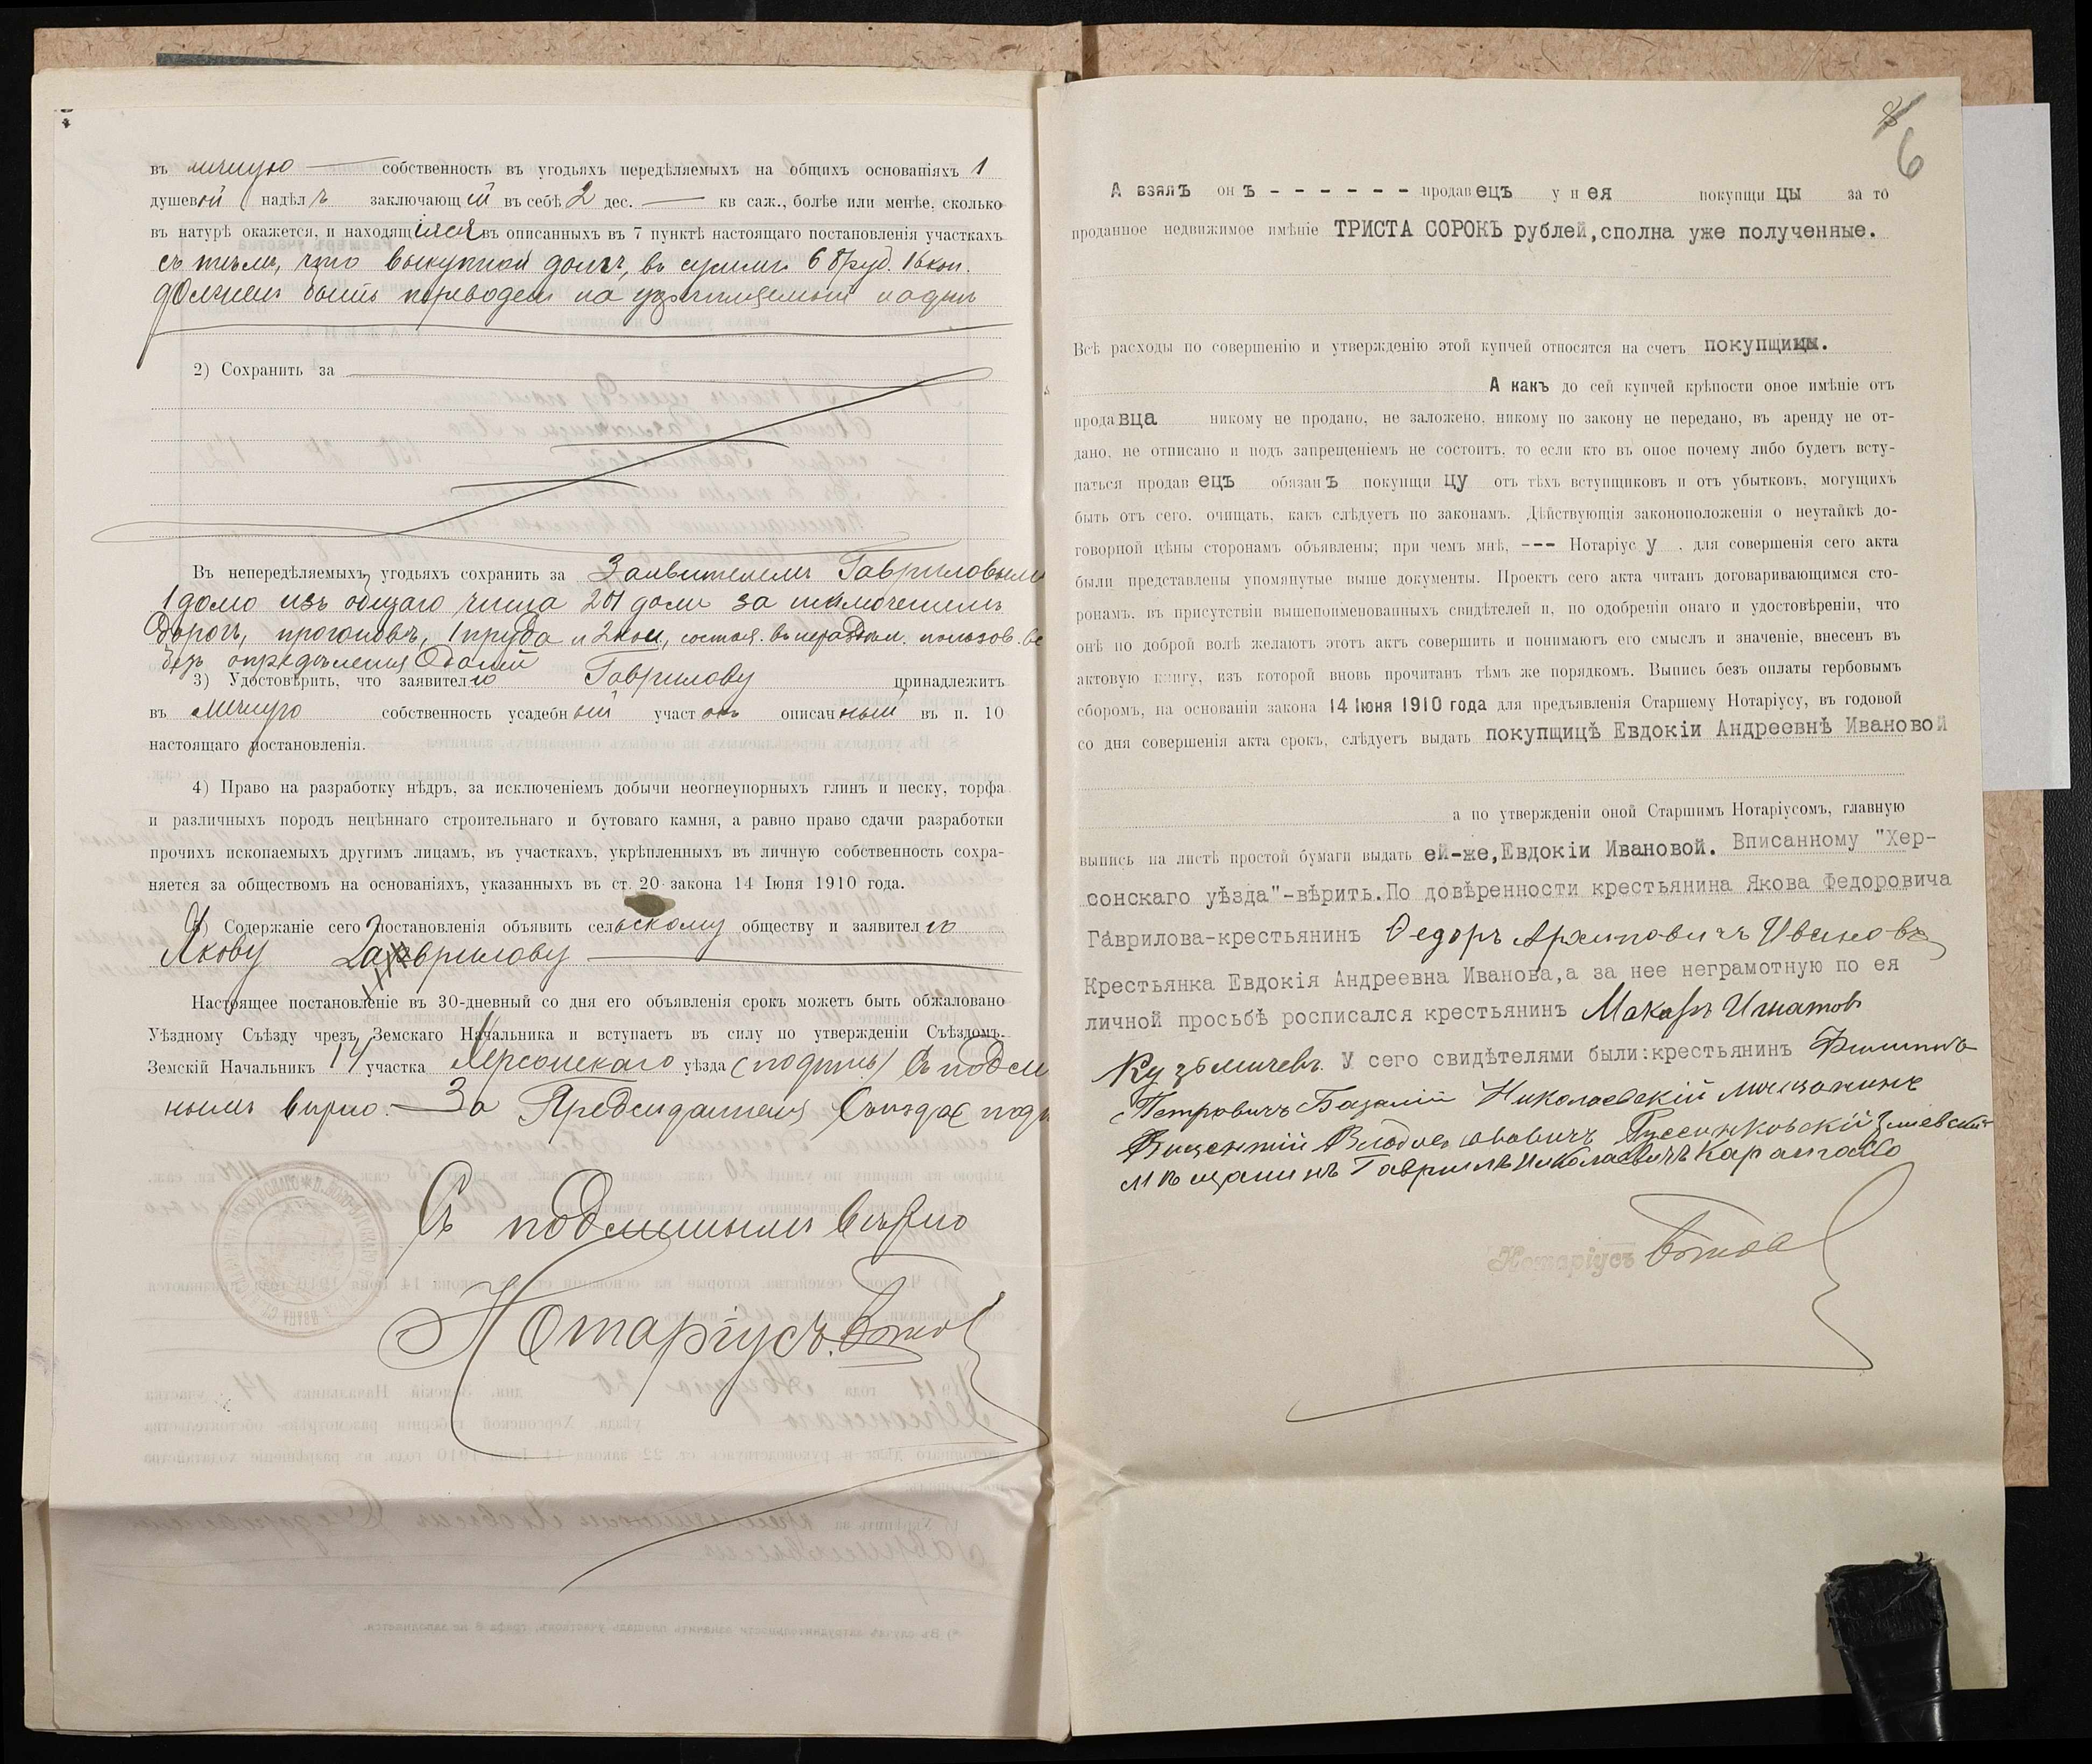 въ личную собственность въ угодьяхъ передѣляемыхъ на общихъ основаніяхъ 1
душевой надѣлъ заключающій въ себѣ 2 дес. — кв саж., болѣе или менѣе, сколько
въ натурѣ окажется, и находящійся въ описанныхъ въ 7 пунктѣ настоящаго постановленія участкахъ
съ тѣмъ, что выкупной долгъ, въ суммѣ 68 руб. 16 коп.
долженъ быть переведенъ на укрѣпляемый надѣлъ
2) Сохранить за
Въ непередѣляемыхъ угодьяхъ сохранить за Заявителемъ Гавриловымъ
1 долю изъ общаго числа 201 доли за исключеніемъ
дорогъ, прогоновъ, 1 пруда и 2 кол., состоя.
безъ опредѣленія долей
3) Удостовѣрить, что заявителю Гаврилову принадлежитъ
въ личную собственность усадебный участокъ описанный въ п. 10
настоящаго постановленія.
4) Право на разработку нѣдръ, за исключеніемъ добычи неогнеупорныхъ глинъ и песку, торфа
и различныхъ породъ нецѣннаго строительнаго и бутоваго камня, а равно право сдачи разработки
прочихъ ископаемыхъ другимъ лицамъ, въ участкахъ, укрѣпленныхъ въ личную собственность сохра-
няется за обществомъ на основаніяхъ, указанныхъ въ ст. 20 закона 14 Іюня 1910 года.
5) Содержаніе сего постановленія объявить сельскому обществу и заявителю
Якову Гаврилову
Настоящее постановленіе въ 30-дневный со дня его объявленія срокъ можетъ быть обжаловано
Уѣздному Съѣзду чрезъ Земскаго Начальника и вступаетъ въ силу по утвержденіи Съѣздомъ.
Земскій Начальникъ 14 участка Херсонскаго уѣзда (подпись) Съ подлин
нымъ вѣрно. За Предсѣдателя Съѣзда (подп
Съ подлиннымъ вѣрно
Нотаріусъ
6
А взялъ онъ - - - - - - - продавецъ у нея покупщицы за то
проданное недвижимое имѣніе ТРИСТА СОРОКЪ рублей, сполна уже полученные.
Всѣ расходы по совершенію и утвержденію этой купчей относятся на счетъ покупщицы.
А какъ до сей купчей крѣпости оное имѣніе отъ
продавца никому не продано, не заложено, никому по закону не передано, въ аренду не от-
дано, не отписано и подъ запрещеніемъ не состоитъ, то если кто въ оное почему либо будетъ всту-
паться продавецъ обязанъ покупщицу отъ тѣхъ вступщиковъ и отъ убытковъ, могущихъ
быть отъ сего, очищать, какъ слѣдуетъ по законамъ. Дѣйствующія законоположенія о неутайкѣ до-
говорной цѣны сторонамъ объявлены; при чемъ мнѣ, --- Нотаріусу, для совершенія сего акта
были представлены упомянутые выше документы. Проектъ сего акта читанъ договаривающимся сто-
ронамъ, въ присутствіи вышепоименованныхъ свидѣтелей и, по одобреніи онаго и удостовѣреніи, что
онѣ по доброй волѣ желаютъ этотъ актъ совершить и понимаютъ его смыслъ и значеніе, внесенъ въ
актовую книгу, изъ которой вновь прочитанъ тѣмъ же порядкомъ. Выпись безъ оплаты гербовымъ
сборомъ, на основаніи закона 14 Іюня 1910 года для предъявленія Старшему Нотаріусу, въ годовой
со дня совершенія акта срокъ, слѣдуетъ выдать покупщицѣ Евдокіи Андреевнѣ Ивановой
а по утвержденіи оной Старшимъ Нотаріусомъ, главную
выпись на листѣ простой бумаги выдать ей-же, Евдокіи Ивановой. Вписанному "Хер-
сонскаго уѣзда"-вѣрить. По довѣренности крестьянина Якова Федоровича
Гаврилова-крестьянинъ Федоръ Архиповичъ Ивановъ
Крестьянка Евдокія Андреевна Иванова, а за нее неграмотную по ея
личной просьбѣ росписался крестьянинъ Макаръ Игнатов
Кузьмичевъ. У сего свидѣтелями были: крестьянинъ Филиппъ
Петровичъ Базалій Николаевскій мѣщанинъ
Викентій Владиславовичъ
мѣщанинъ Гавріилъ Николаевичъ
Нотаріусъ